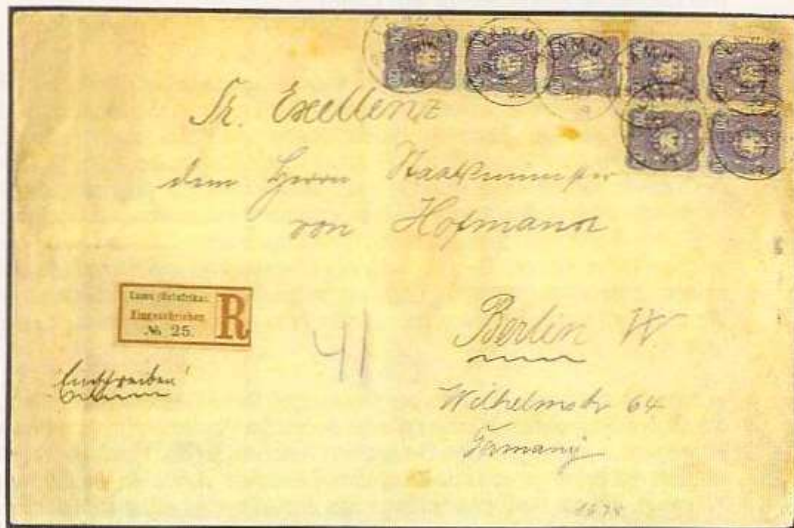 LAMU
Sr. Excellenz
dem Herrn Staatsminister
von Hofmann
Lamu (Ostafrika).
Eingeschrieben
№ 25.
R
41
Berlin W
Einschreiben
Wilhelmstr 64
Germany